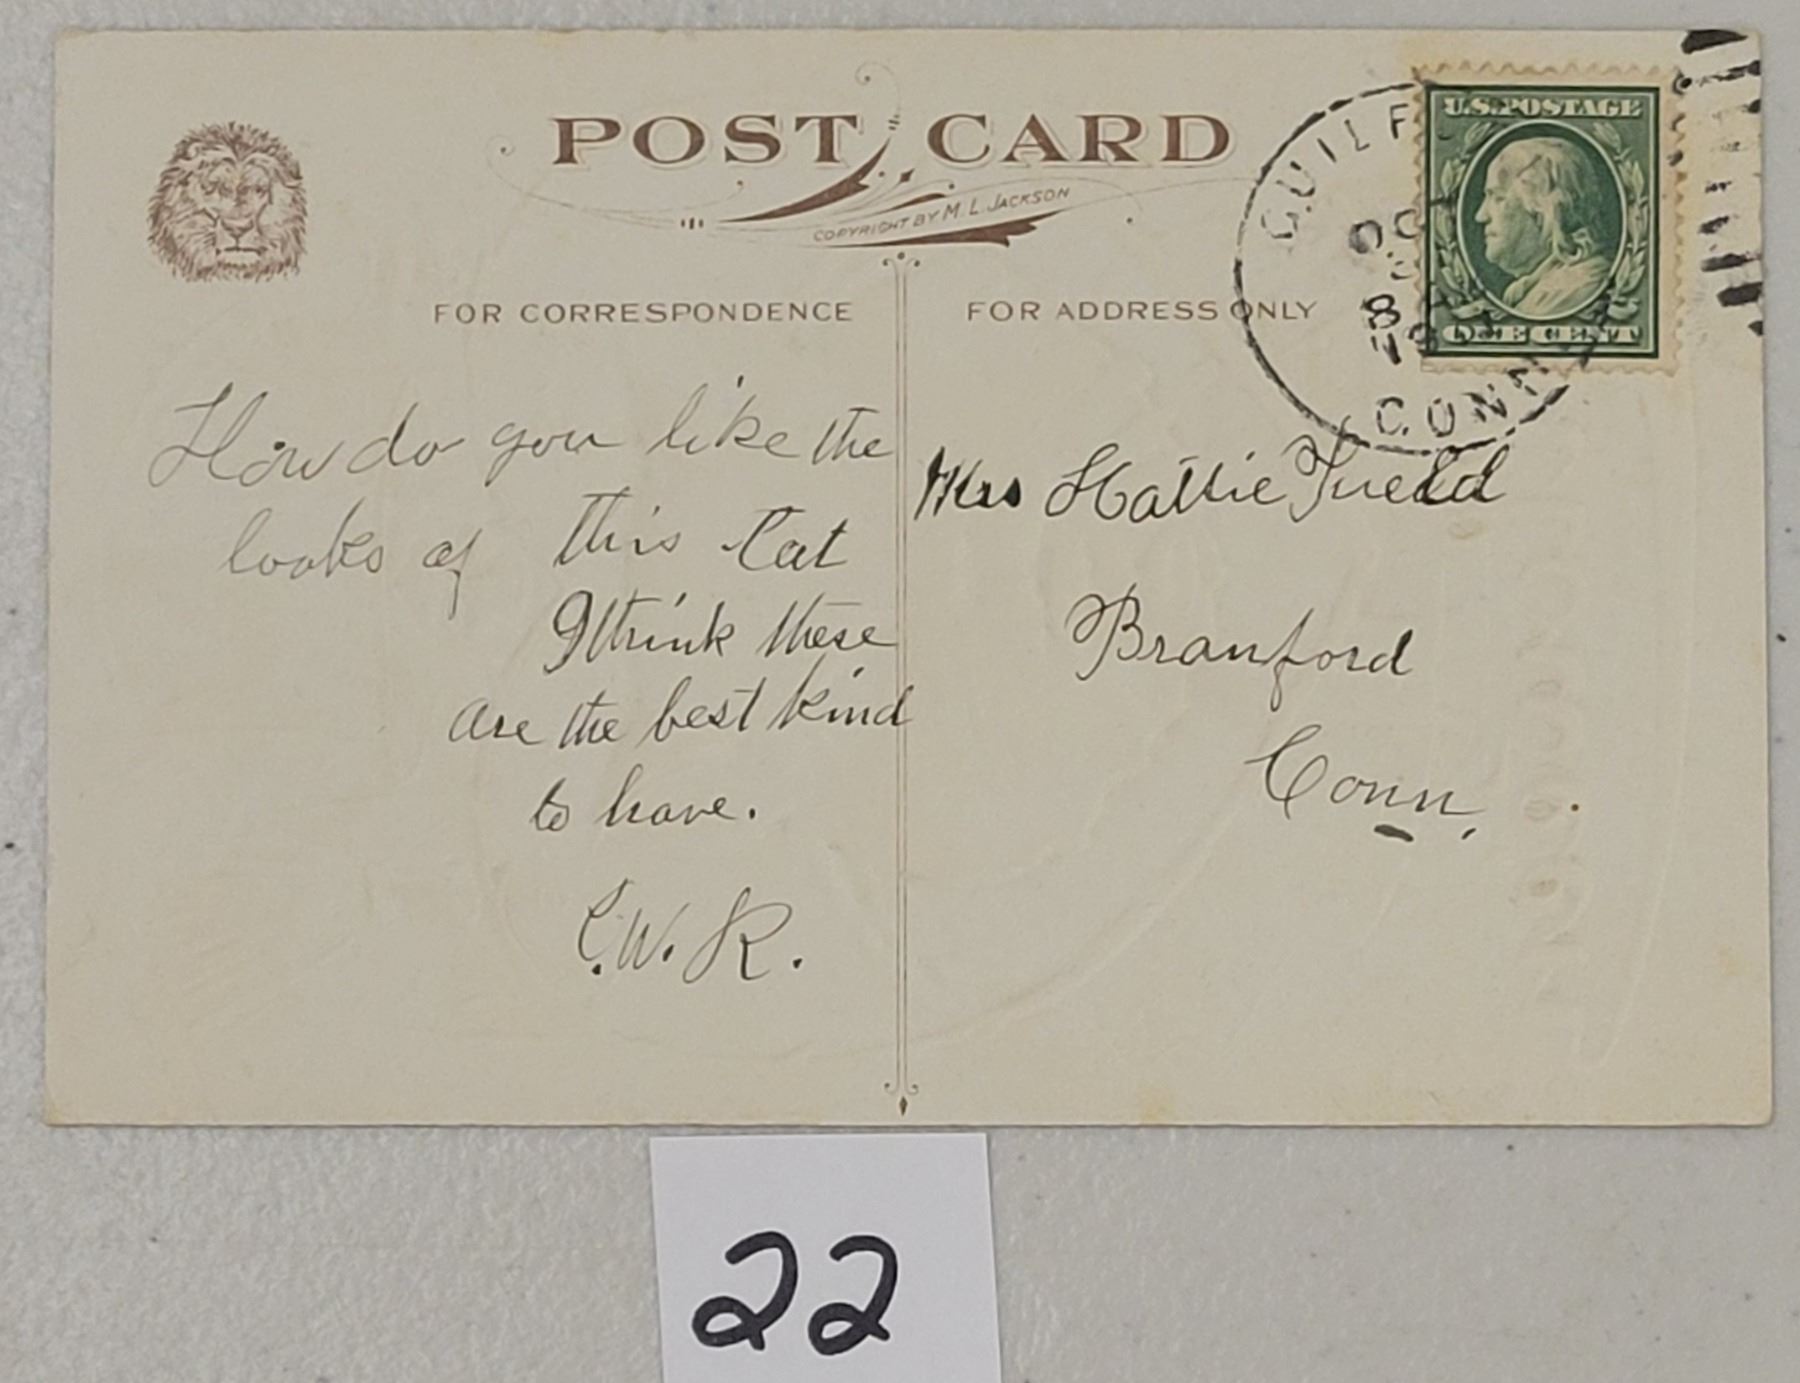 POST CARD
COPYRIGHT BY M. L. JACKSON
FOR CORRESPONDENCE
FOR ADDRESS ONLY
U.S. POSTAGE
ONE CENT
GUILF
OCT
8
19
CONN
How do you like the
looks of this Cat
I think these
are the best kind
to have.
C.W.R.
Mrs Hattie
Branford
Conn.
22